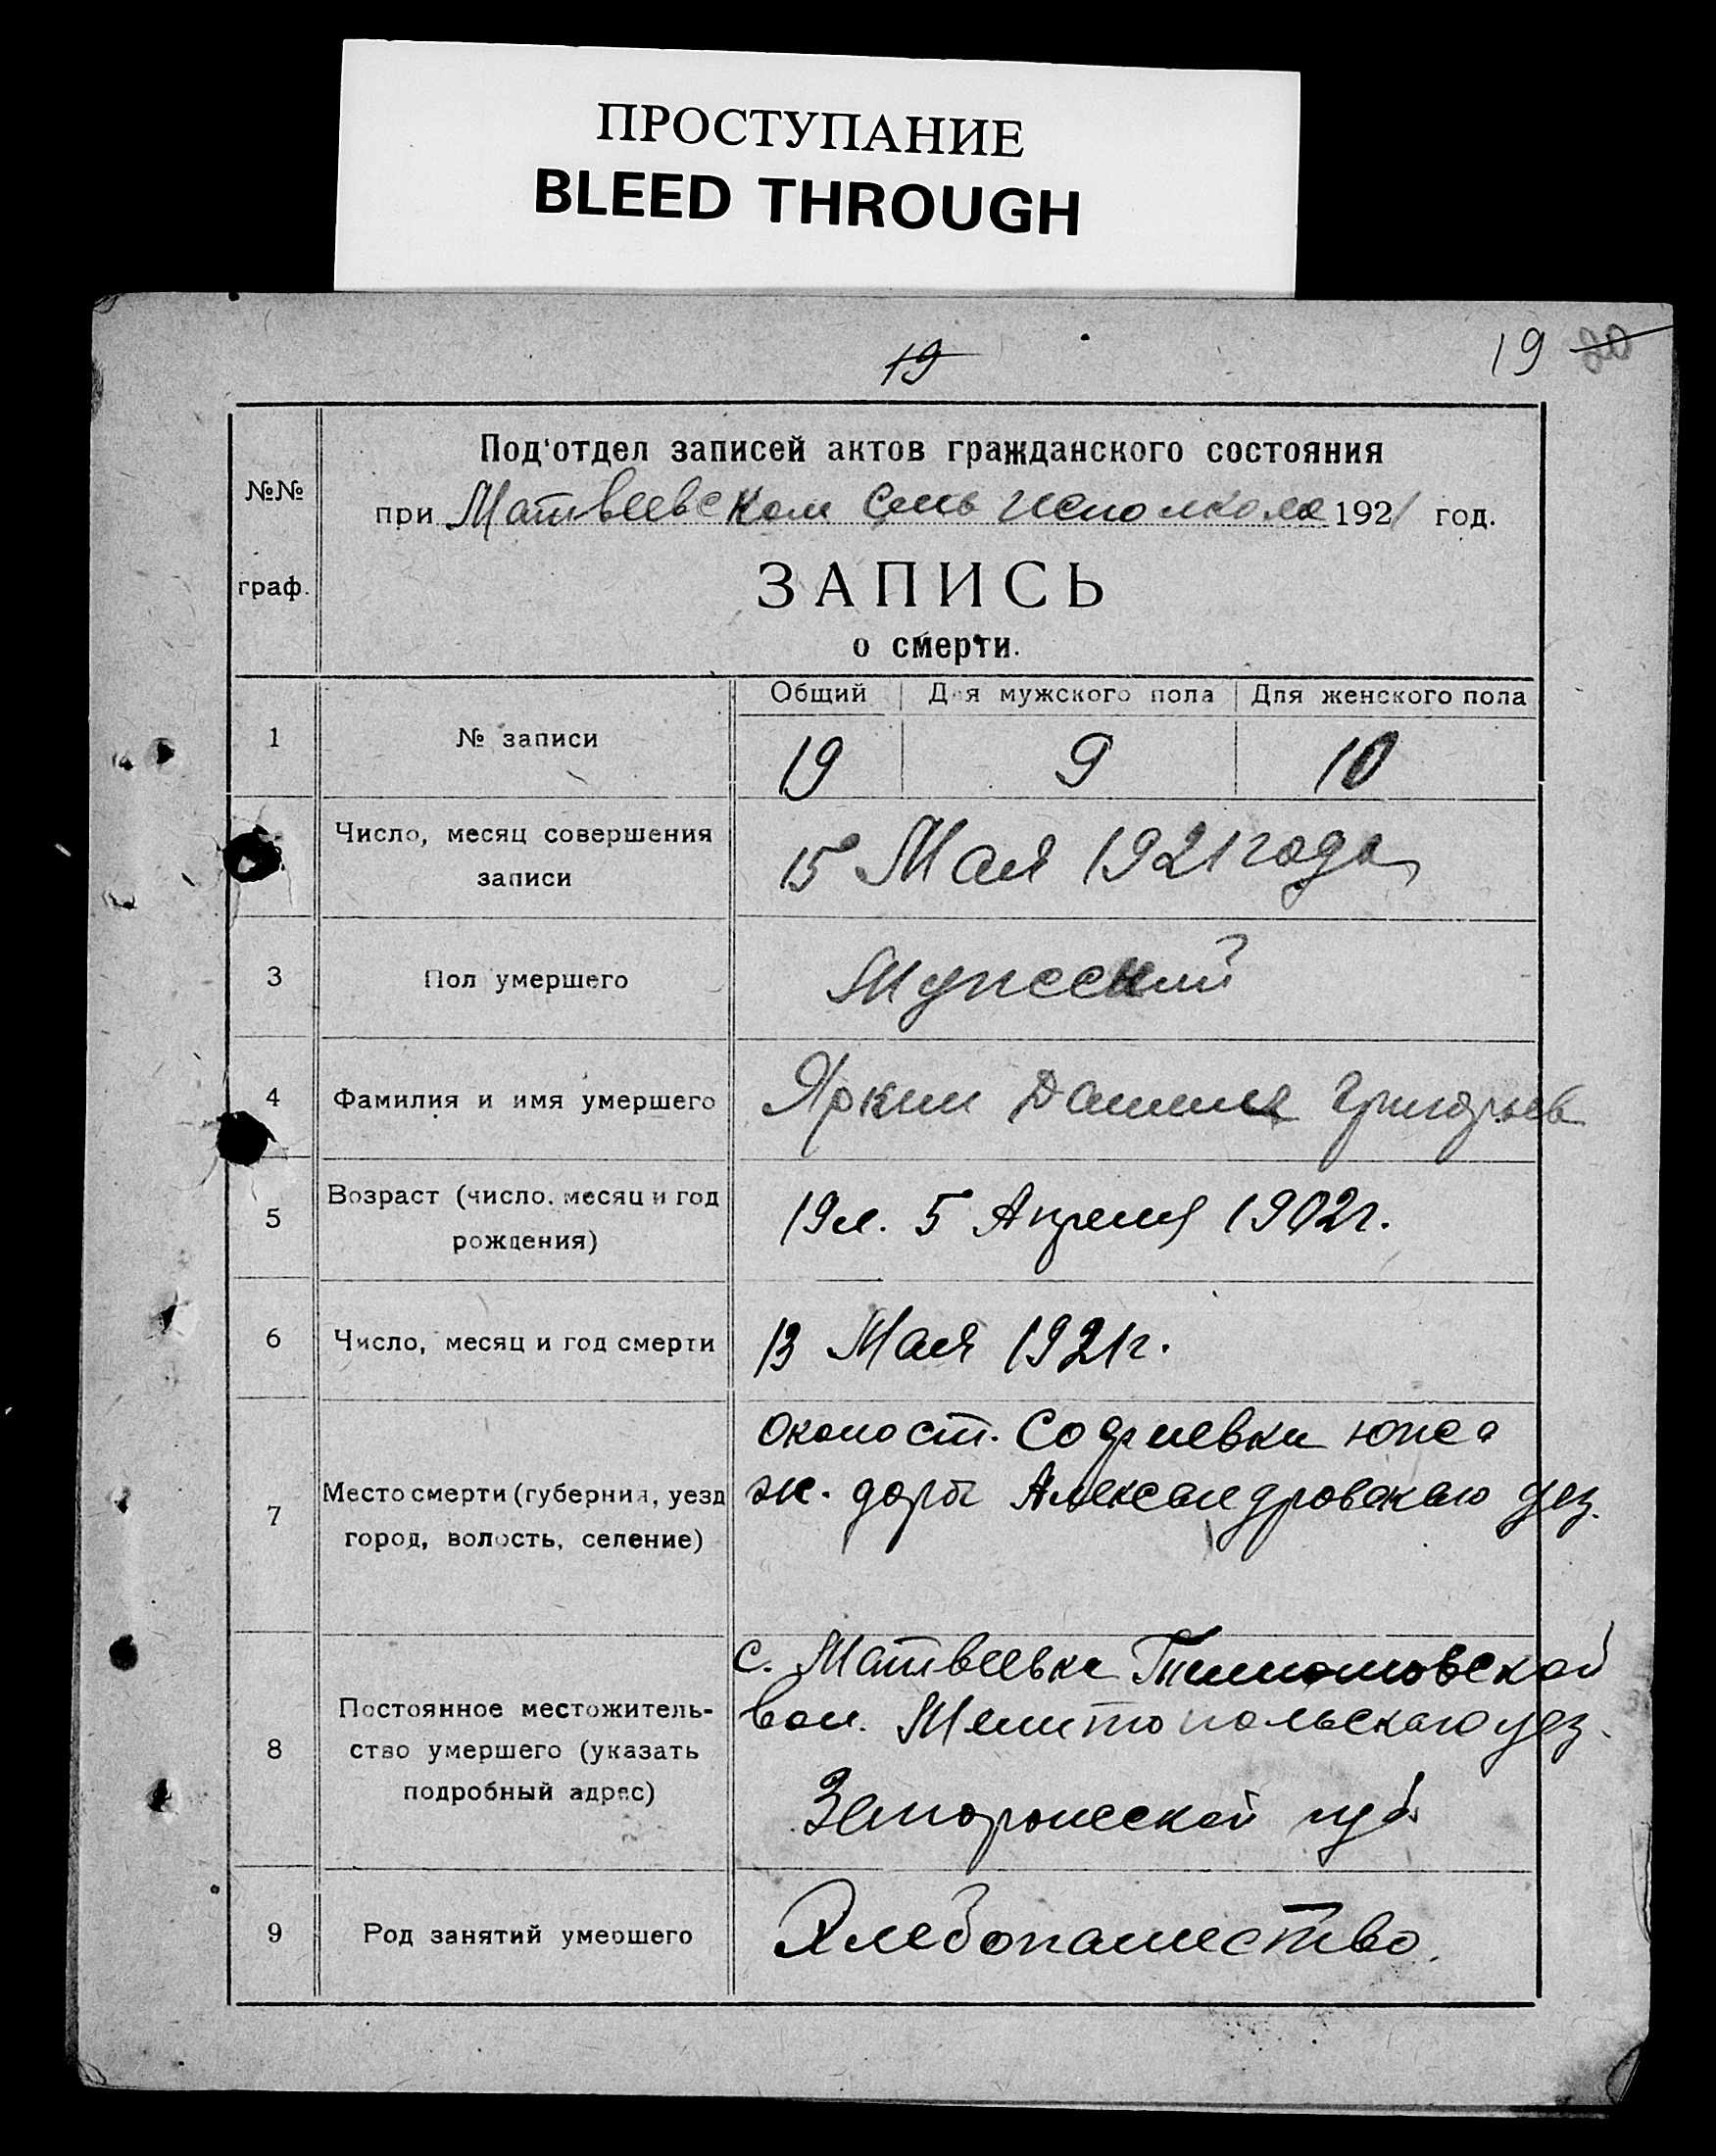 ПРОСТУПАНИЕ
BLEED THROUGH
19
19 20
Под'отдел записей актов гражданского состояния
№№
при Матвеевском Сель Исполкоме 1921 год.
граф.
ЗАПИСЬ
о смерти.
Общий Для мужского пола Для женского пола
1 № записи 19 9 10
Число, месяц совершения
записи
15 Мая 1921 года
3 Пол умершего Мужеский
4 Фамилия и имя умершего Яркин Даниил Григорьев
5 Возраст (число, месяц и год
рождения)
19 л. 5 Апреля 1902 г.
6 Число, месяц и год смерти 13 Мая 1921 г.
7 Место смерти (губерния, уезд
город, волость, селение)
Около ст. Софиевки южно
ж. дороги Александровскаго уез.
8 Постоянное местожитель-
ство умершего (указать
подробный адрес)
с. Матвеевка
вол. Мелитопольскаго уез.
Запорожеской губ.
9 Род занятий умершего Хлебопашество.